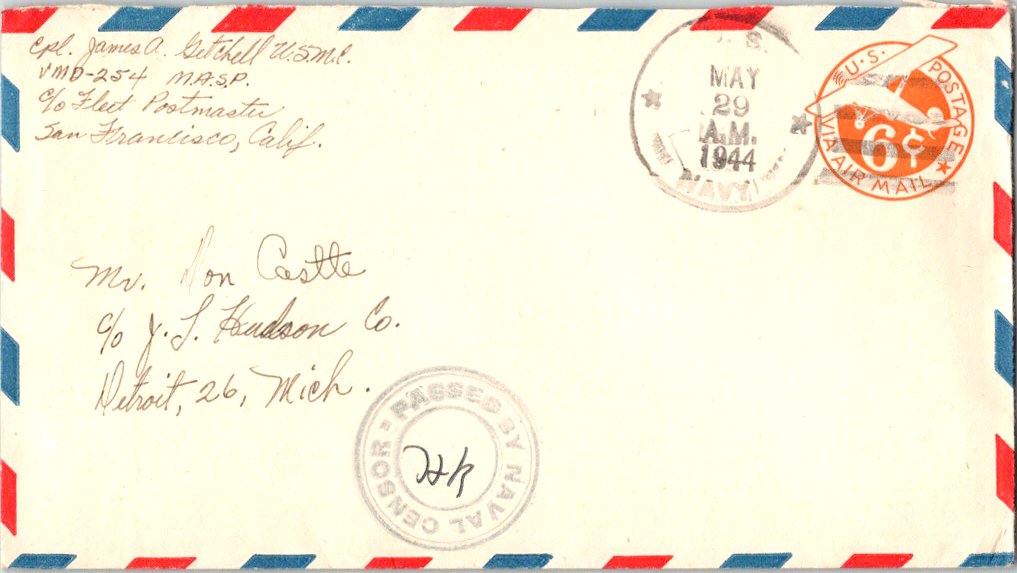 Cpl. James A. Getchell U.S.M.C.
VMD-254 M.A.S.P.
c/o Fleet Postmaster
San Francisco, Calif.
U.S.
MAY
29
A.M.
1944
NAVY
U.S. POSTAGE
6¢
VIA AIR MAIL
Mr. Don Castle
c/o J. L. Hudson Co.
Detroit, 26, Mich.
PASSED BY NAVAL CENSOR